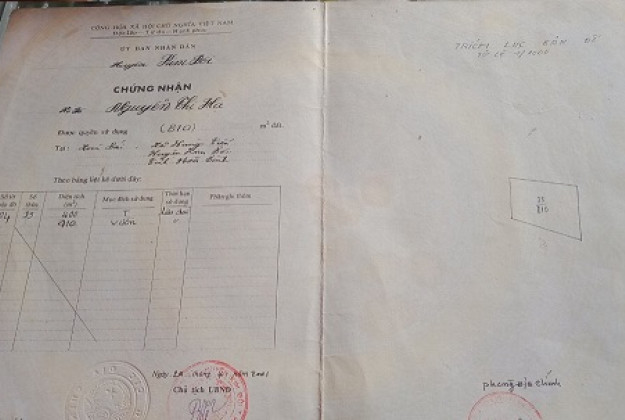 CỘNG HÒA XÃ HỘI CHỦ NGHĨA VIỆT NAM
Độc lập - Tự do - Hạnh phúc
ỦY BAN NHÂN DÂN
Huyện Kim Bôi
CHỨNG NHẬN
Nguyễn Thị Hà
Được quyền sử dụng (810) m² đất.
Tại:
Huyện Kim Bôi
Tỉnh Hòa Bình
Theo bảng liệt kê dưới đây:
Số tờ bản đồ Số thửa Diện tích (m²) Mục đích sử dụng Thời hạn sử dụng Phần ghi thêm
04 33 400 T Lâu dài
410 Vườn
Ngày tháng năm 2001
Chủ tịch UBND
TRÍCH LỤC BẢN ĐỒ
TỶ LỆ 1/1000
33
810
phòng địa chính